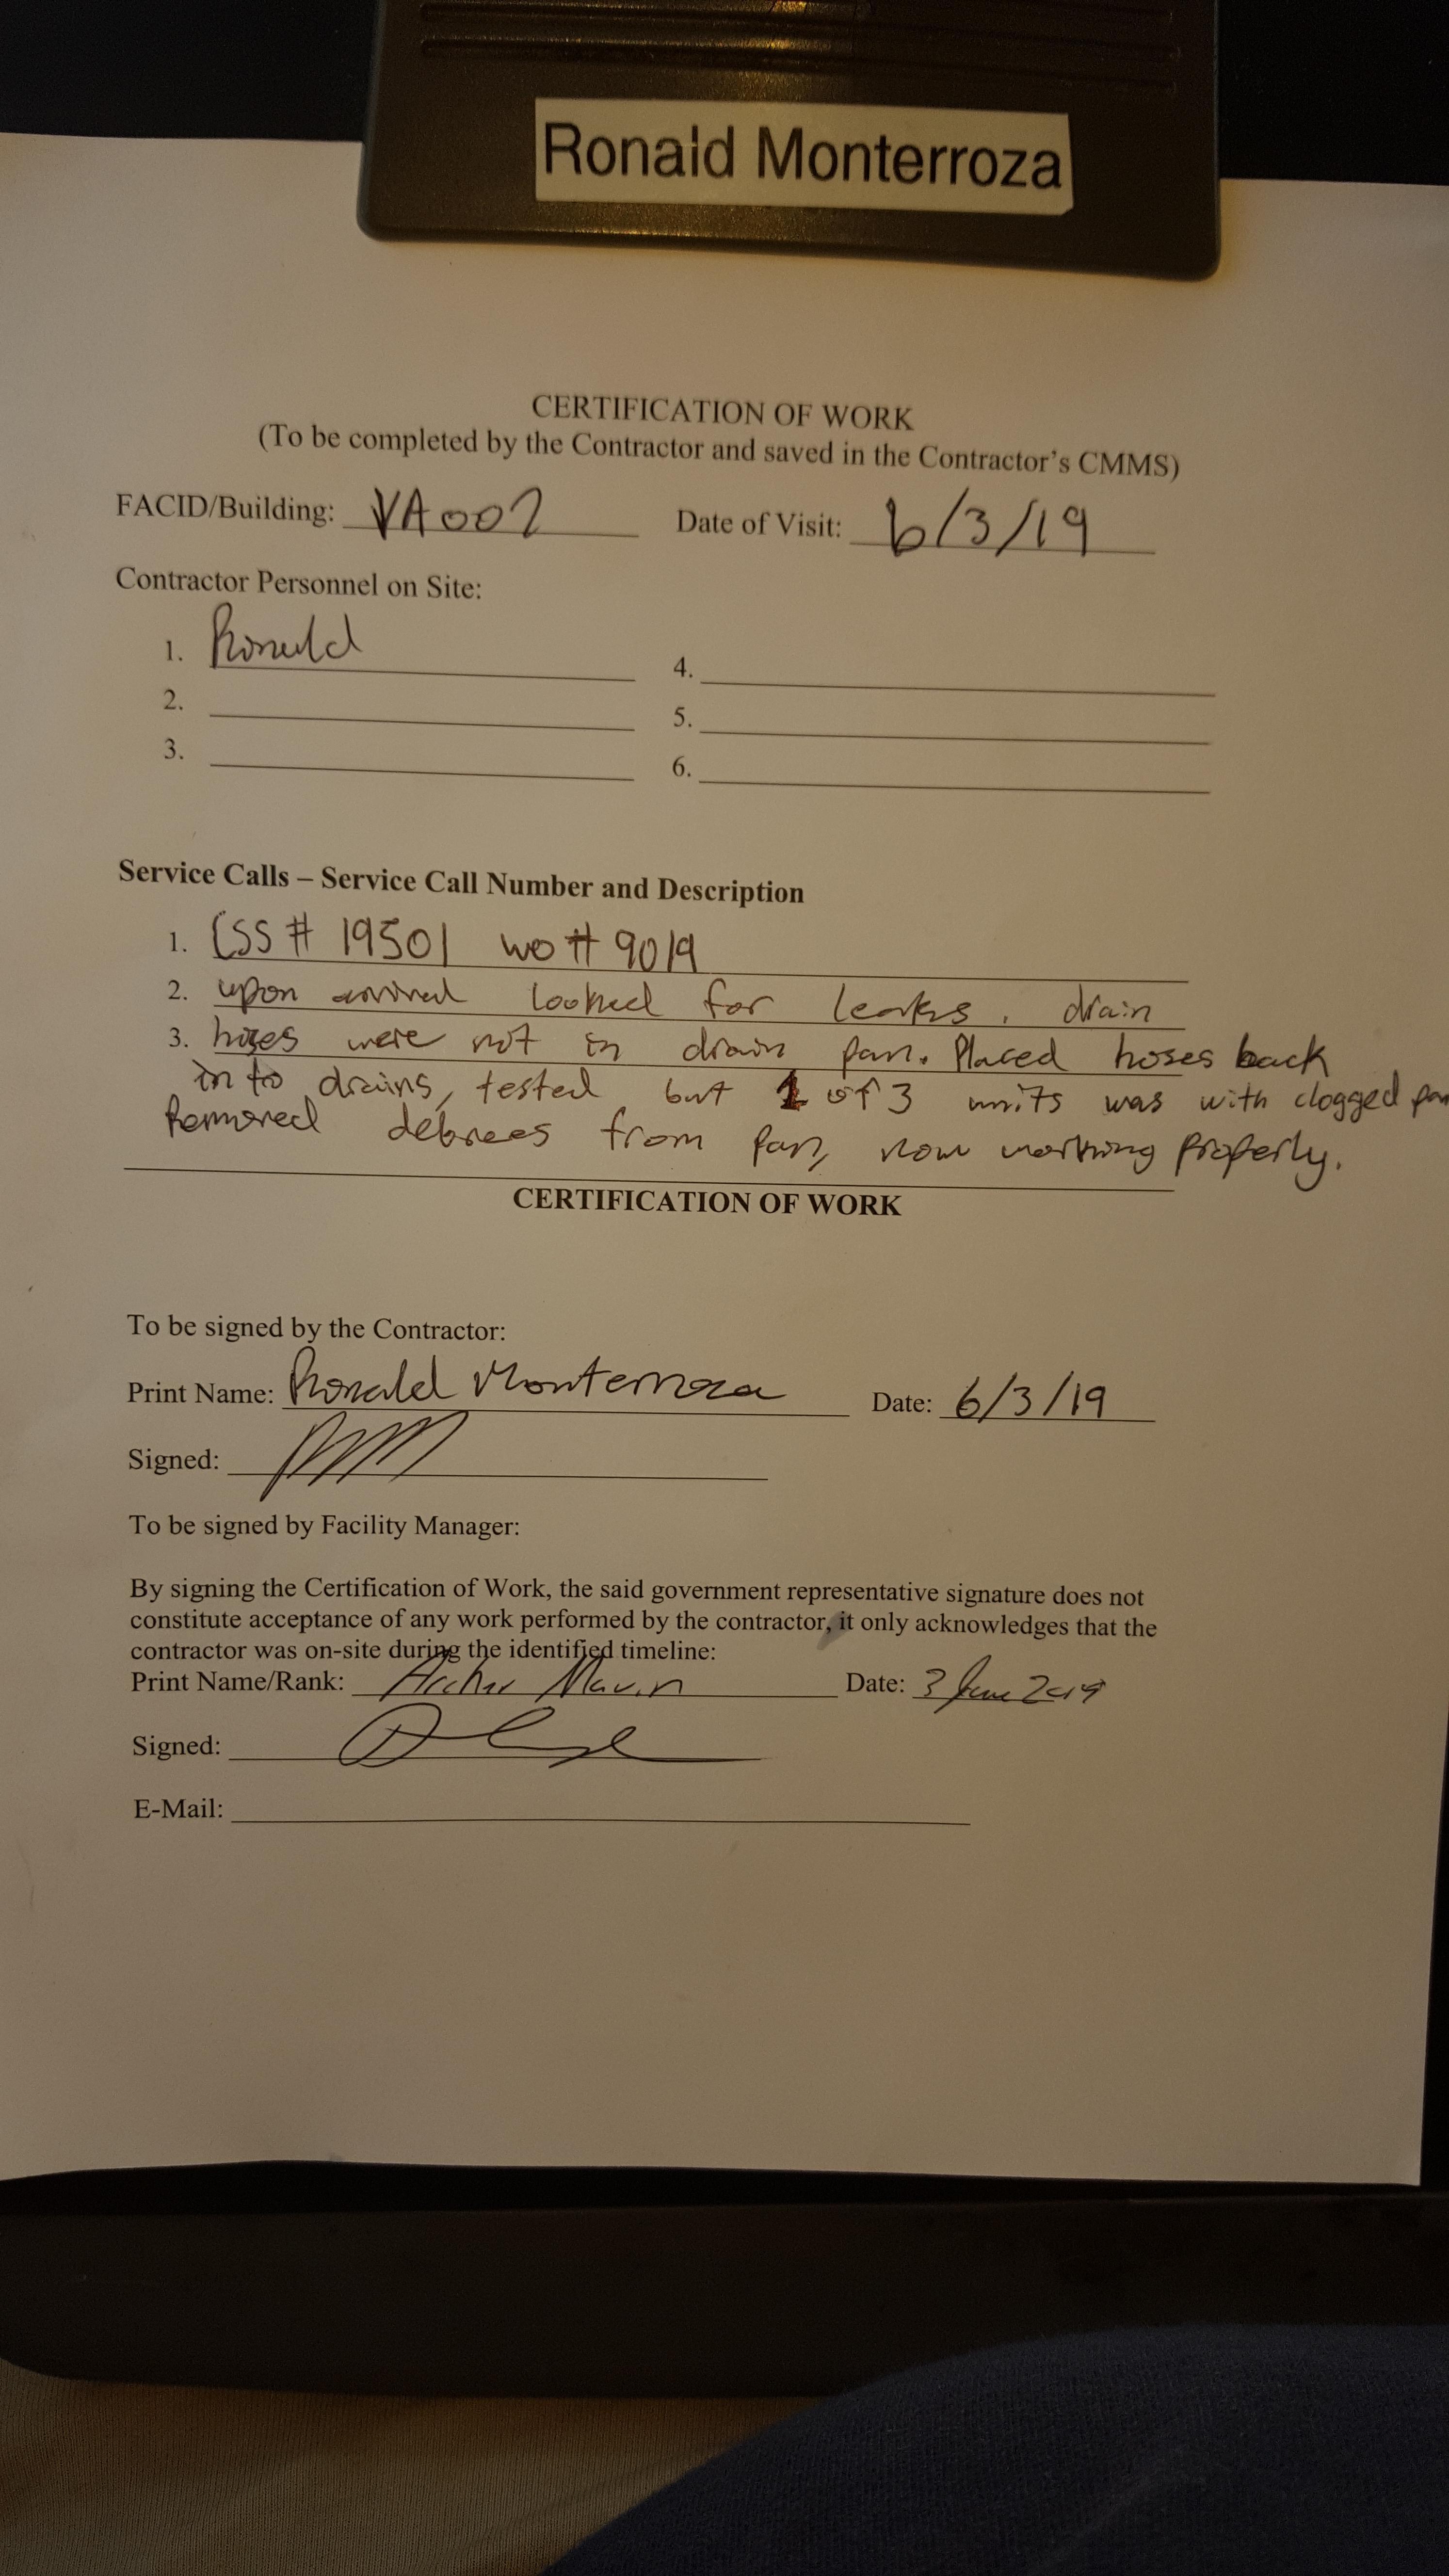 Ronald Monterroza
CERTIFICATION OF WORK
(To be completed by the Contractor and saved in the Contractor's CMMS)
FACID/Building: VA002 Date of Visit: 6/3/19
Contractor Personnel on Site:
1. Ronald 4.
2. 5.
3. 6.
Service Calls – Service Call Number and Description
1. CSS # 19501 wo # 9019
2. upon arrival looked for leaks, drain
3. hoses were not in drain pan. Placed hoses back
in to drains, tested but 1 of 3 units was with clogged pan
Removed debrees from pan, now working properly.
CERTIFICATION OF WORK
To be signed by the Contractor:
Print Name: Ronald Monterroza Date: 6/3/19
Signed:
To be signed by Facility Manager:
By signing the Certification of Work, the said government representative signature does not
constitute acceptance of any work performed by the contractor, it only acknowledges that the
contractor was on-site during the identified timeline:
Print Name/Rank: Archer Mavin Date: 3 June 2019
Signed:
E-Mail: